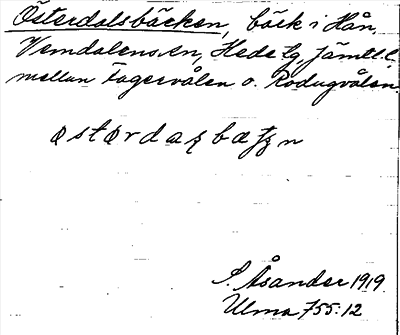 Österdalsbäcken, bäck i Hån,
Vemdalens sn, Hede tg, Jämtl. l.
mellan Fagervålen o. Rodugvålen.
østørdaʂbætʂn
S. Åsander 1919.
Ulma 755:12